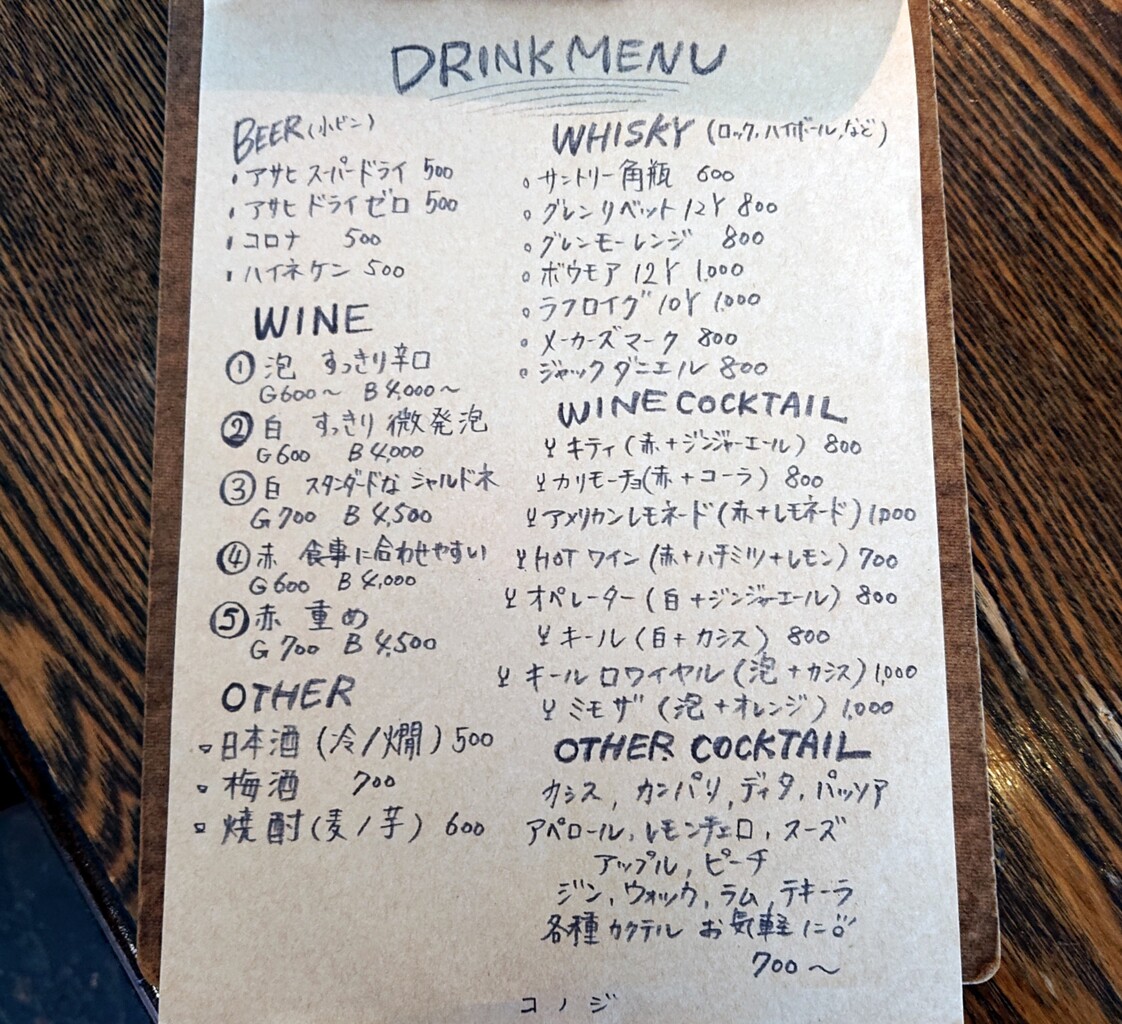 DRINK MENU
BEER (小ビン)
・アサヒ スーパードライ 500
・アサヒ ドライゼロ 500
・コロナ 500
・ハイネケン 500
WINE
① 泡 すっきり辛口
G600〜 B4,000〜
② 白 すっきり 微発泡
G600 B4,000
③ 白 スタンダードな シャルドネ
G700 B4,500
④ 赤 食事に合わせやすい
G600 B4,000
⑤ 赤 重め
G700 B4,500
OTHER
日本酒 (冷/燗) 500
梅酒 700
焼酎 (麦/芋) 600
WHISKY (ロック,ハイボール,など)
サントリー 角瓶 600
グレンリベット 12Y 800
グレンモーレンジ 800
ボウモア 12Y 1,000
ラフロイグ 10Y 1,000
メーカーズマーク 800
ジャックダニエル 800
WINE COCKTAIL
キティ (赤+ジンジャーエール) 800
カリモーチョ (赤+コーラ) 800
アメリカンレモネード (赤+レモネード) 1,000
HOT ワイン (赤+ハチミツ+レモン) 700
オペレーター (白+ジンジャーエール) 800
キール (白+カシス) 800
キール ロワイヤル (泡+カシス) 1,000
ミモザ (泡+オレンジ) 1,000
OTHER COCKTAIL
カシス, カンパリ, ディタ, パッソア
アペロール, レモンチェロ, スーズ
アップル, ピーチ
ジン, ウォッカ, ラム, テキーラ
各種カクテル お気軽に
700〜
コノジ